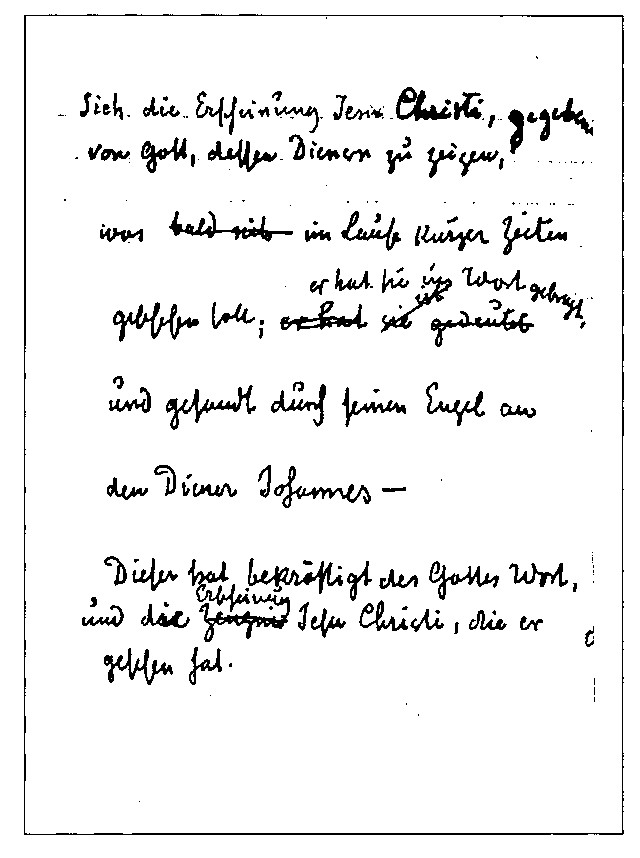 Sieh die Erscheinung Jesu Christi, gegeben
von Gott, dessen Dienern zu zeigen,
was bald mit im Laufe kurzer Zeiten
er hat sie ins Wort gebracht,
geschehen soll; er hat sie gedeutet
und gesandt durch seinen Engel an
den Diener Johannes —
Dieser hat bekräftigt des Gottes Wort,
Erscheinung
und die Zeugnis Jesu Christi, die er
gesehen hat.